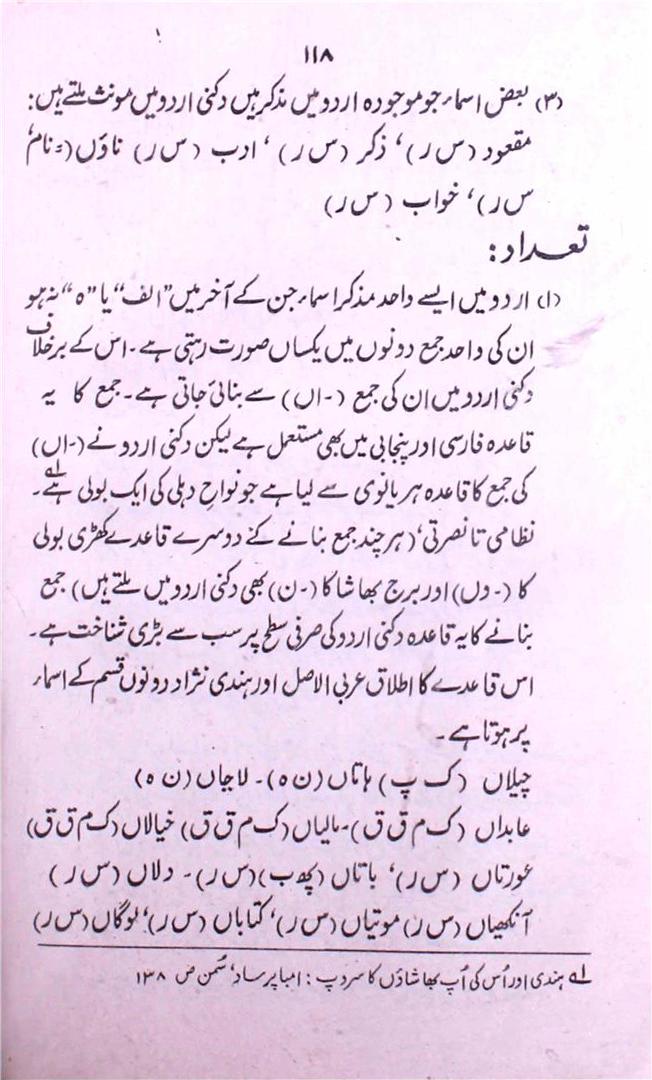 ۱۱۸
(۳) بعض اسماء جو موجودہ اردو میں مذکر ہیں دکنی اردو میں مونث ملتے ہیں:
مقعود (س ر)، ذکر (س ر)، ادب (س ر) ناؤں (= نام،
س ر)، خواب (س ر)
تعداد:
(۱) اردو میں ایسے واحد مذکر اسماء جن کے آخر میں "الف" یا "ہ" نہ ہو
ان کی واحد جمع دونوں میں یکساں صورت رہتی ہے۔ اس کے برخلاف
دکنی اردو میں ان کی جمع (-اں) سے بنائی جاتی ہے۔ جمع کا یہ
قاعدہ فارسی اور پنجابی میں بھی مستعمل ہے لیکن دکنی اردو نے (-اں)
کی جمع کا قاعدہ ہریانوی سے لیا ہے جو نواحِ دہلی کی ایک بولی ہے۔ ۱ے
نظامی تا نصرتی، (ہر چند جمع بنانے کے دوسرے قاعدے کھڑی بولی
کا (-وں) اور برج بھاشا کا (-ن) بھی دکنی اردو میں ملتے ہیں) جمع
بنانے کا یہ قاعدہ دکنی اردو کی صرفی سطح پر سب سے بڑی شناخت ہے۔
اس قاعدے کا اطلاق عربی الاصل اور ہندی نژاد دونوں قسم کے اسماء
پر ہوتا ہے۔
چیلاں (ک پ) ہاتاں (ن ہ)۔ لاجاں (ن ہ)
عابداں (ک م ق ق)۔ مالیاں (ک م ق ق) خیالاں (ک م ق ق)
عورتاں (س ر)، باتاں (پھ ب) (س ر)۔ دلاں (س ر)
آنکھیاں (س ر) موتیاں (س ر)، کتاباں (س ر)، لوگاں (س ر)
۱ے ہندی اور اُس کی اُپ بھاشاؤں کا سروپ: امبا پرساد، سُمن ص ۱۳۸